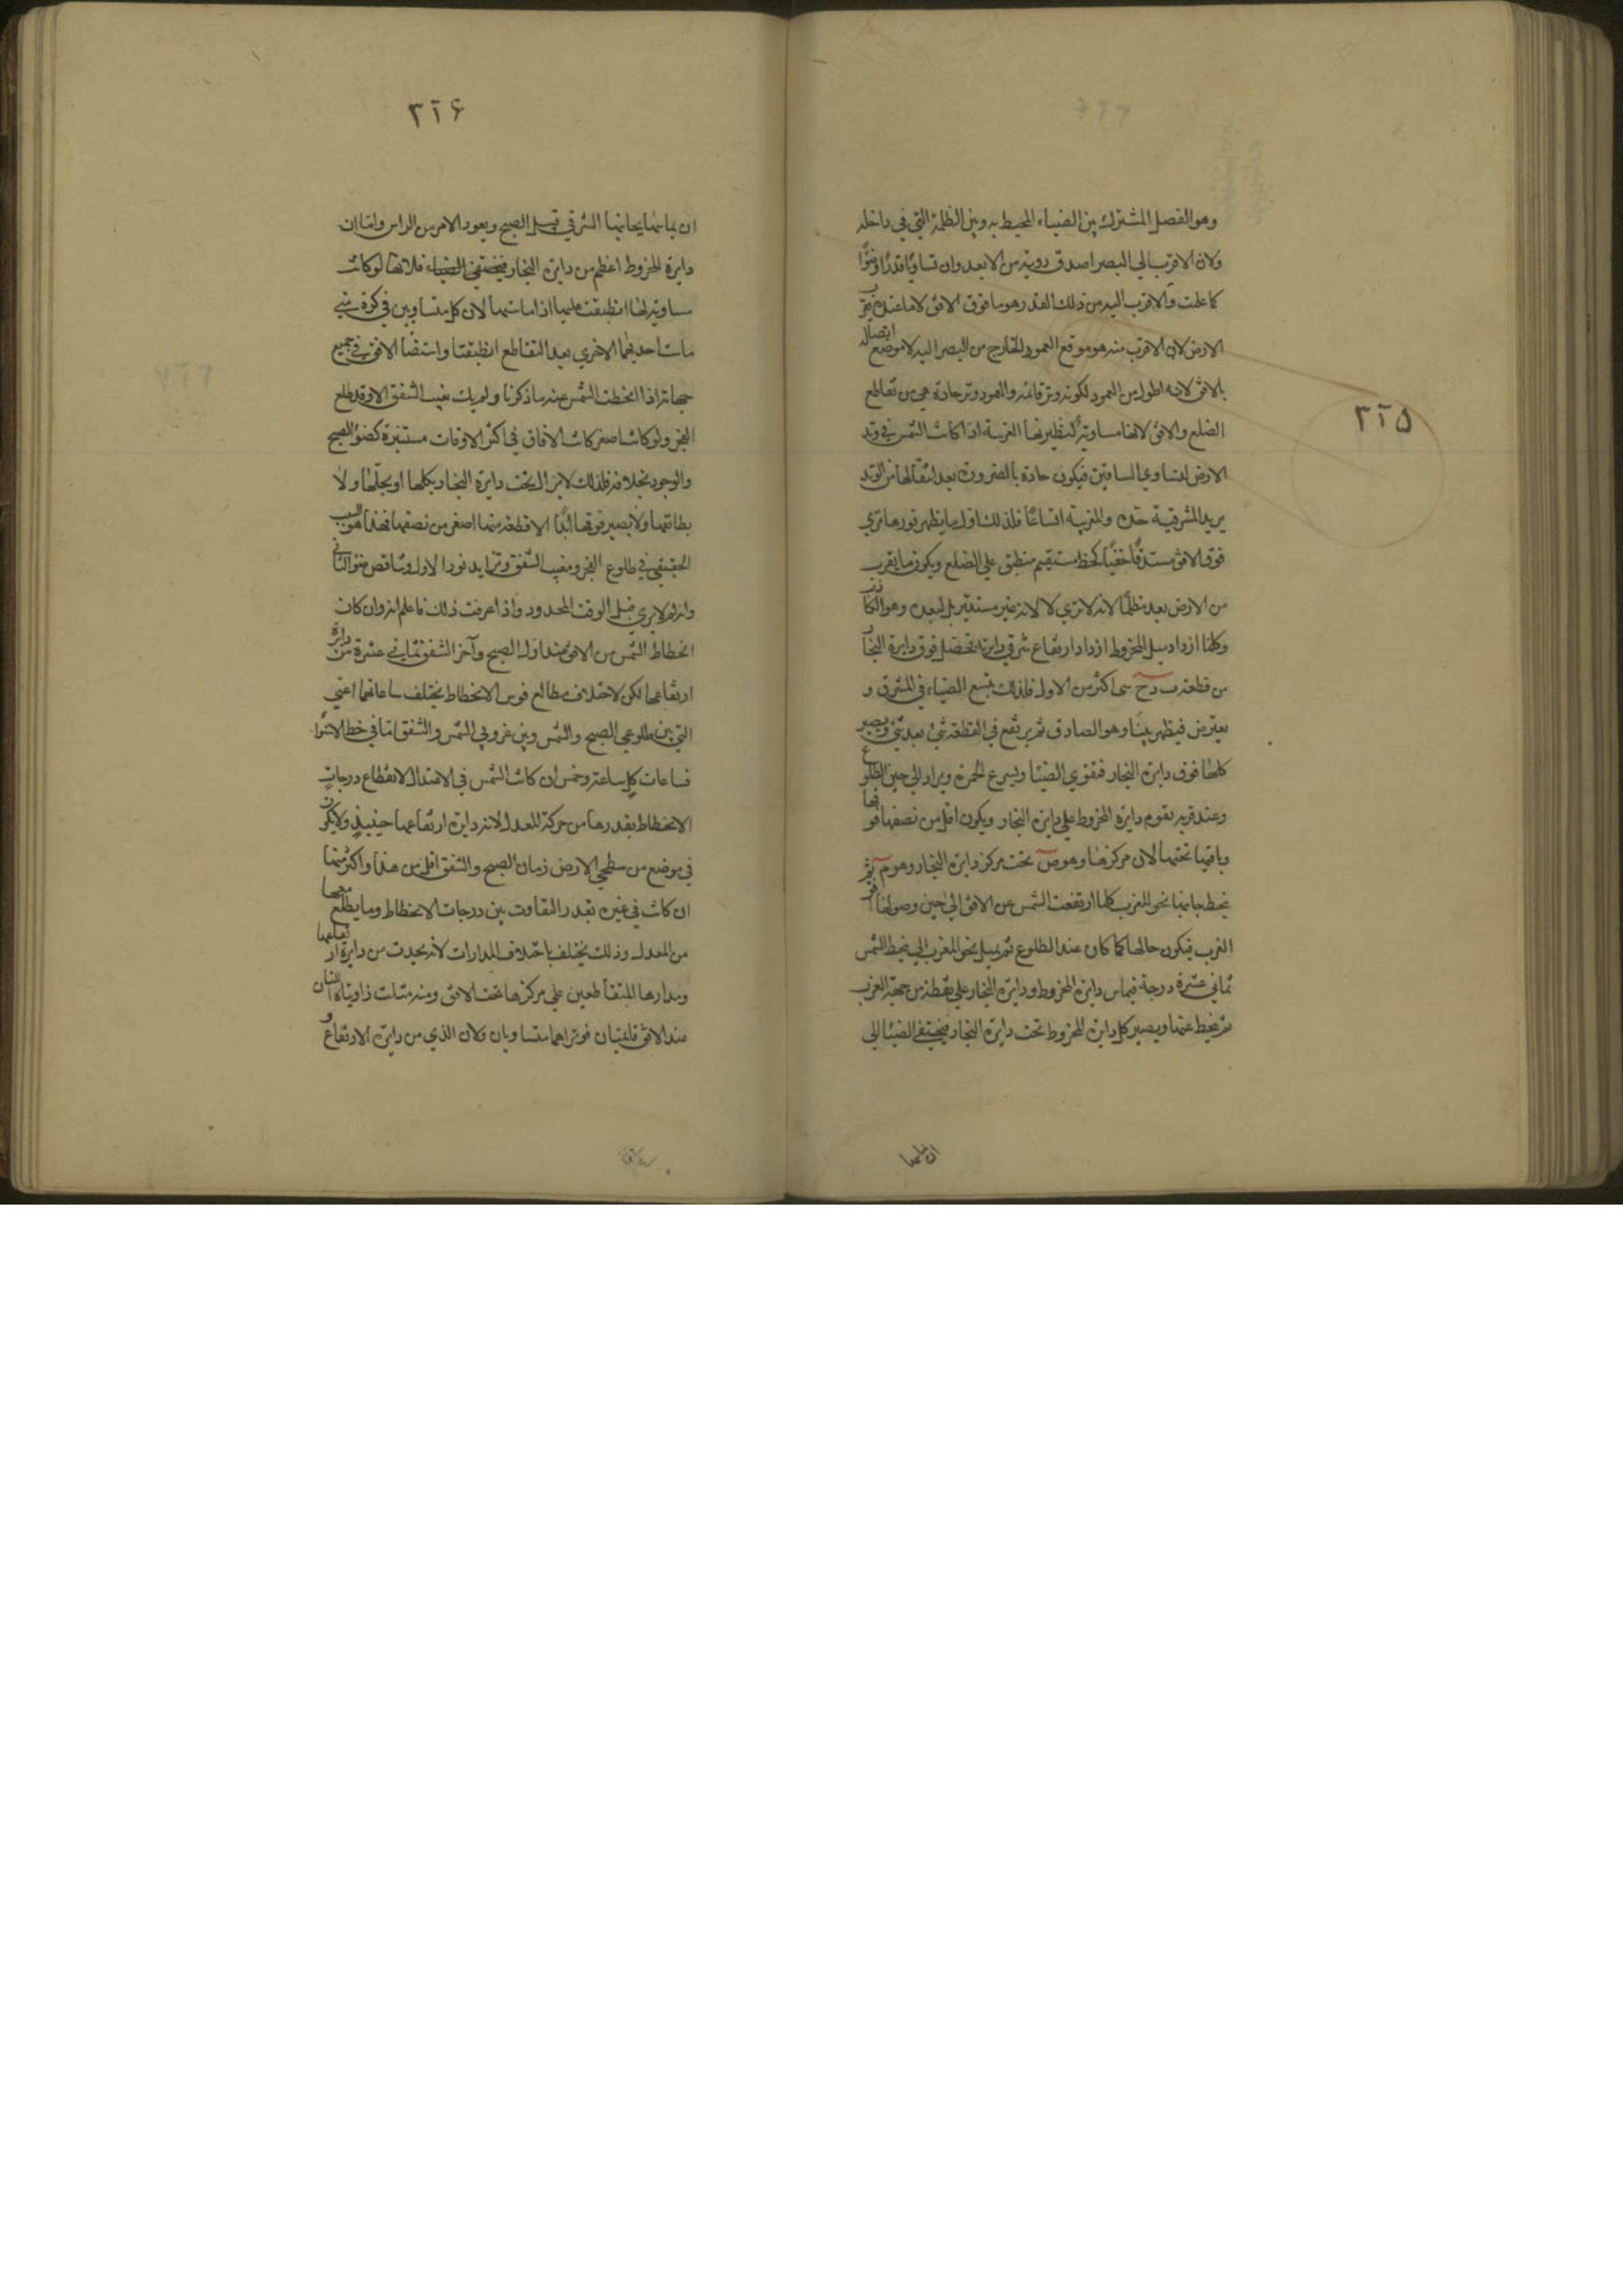 ٣٢٥
وهو الفصل المشترك بين الضياء المحيط به وبين الظلمة التي في داخله
ولان الاقرب الي البصر اصدق روية من الابعد وان تساويا قدرا وضوًا
كما علمت والاقرب اليه من ذلك القدر هو ما فوق الافق لا ما عنده بقرب
الارض لان الاقرب منه هو موقع العمود الخارج من البصر اليه لا موضع اتصاله
بالافق لانه اطول من العمود لكونه وتر قائمه والعمود وتر حادة هي من تقاطع
الضلع والافق لانها مساوية لنظيرتها الغربية اذا كانت الشمس في وتد
الارض لتساوي الساقين فيكون حادة بالضرورة بعد انتقالها من الوتد
يزيد المشرقية حدة والغربية اتساعًا فلذلك اول ما يظهر نورها تري
فوق الافق مستدقًا خفيًا كخط مستقيم منطبق علي الضلع ويكون ما يقرب
من الارض بعد مظلمًا لانه لا تري لا لانه غير مستنير بل لبعده وهو الكاذب
وكلما ازداد ميل المخروط ازداد ارتفاع شرقي دايرته فتحصل فوق دايرة البخار
من قطعة اكثر من الاول فلذلك يتسع الضياء في المشرق و
يعترض فيظهر بينا وهو الصادق ثم يرتفع في القطعة شي بعد شي ويصير
كلها فوق دايرة البخار فيقوي الضيا ويسرع الحمرة ويزاد الي حين الطلوع
وعند قربه تقوم دايرة المخروط علي دايرة البخار ويكون اقل من نصفها فوقها
وباقيها تحتها لان مركزها وهو ص تحت مركز دايرة البخار وهو م ثم
ينحط جانبها نحو المغرب كلما ارتفعت الشمس عن الافق الي حين وصولها افق
الغرب فيكون حالها كما كان عند الطلوع ثم يميل نحو المغرب الي ينحط الشمس
ثماني عشرة درجة فيماس دايرة المخروط ودايرة البخار علي نقطة من جهة الغرب
ثم ينحط عنها ويصير كل دايرة المخروط تحت دايرة البخار فيختفي الضيا الي
ان يماسها
٣٢۶
ان يماسها بجانبها الشرقي قبيل الصبح ويعود الامر من الراس واما ان
دايرة المخروط اعظم من دايرة البخار فيختفي الضياء فلانها لو كانت
مساوية لها انطبقت عليها اذا ماستها لان كل متساويين في كرة متي
ماست احديهما الاخري بعد التقاطع انطبقتا واستضا الافق في جميع
جهاته اذا انحطت الشمس عنه ما ذكرنا ولم يك مغيب الشفق الا وقد طلع
الفجر ولو كانت اصغر كانت الافاق في اكثر الاوقات مستنيرة كضوء الصبح
والوجود بخلافه فلذلك لا يزال تحت دايرة البخار بكلها او بجلها ولا
يطابقها ولا يصير فوقها ابدًا الا قطعة منها اصغر من نصفها فهذا هو السبب
الحقيقي في طلوع الفجر ومغيب الشفق وتزايد نور الاول وتناقص ضو الثاني
وانه لم لا يري قبل الوقت المحدود واذا عرفت ذلك فاعلم انه وان كان
انحطاط الشمس من الافق عند اول الصبح وآخر الشفق ثماني عشرة من دايرة
ارتفاعها لكن لاختلاف مطالع قوس الانحطاط يختلف ساعاتها اعني
التي بين طلوعي الصبح والشمس وبين غروبي الشمس والشفق اما في خط الاستوا
فساعات كل ساعة وخمس ان كانت الشمس في الاعتدال لانقطاع درجات
الانحطاط بقدرها من حركة المعدل لانه دايرة ارتفاعها حينيذ ولا يكون
في موضع من سطحي الارض زمان الصبح والشفق اقل من هذا واكثر منها
ان كانت في غيره بقدر التفاوت بين درجات الانحطاط وما يطلع معها
من المعدل وذلك يختلف باختلاف المدارات لانه يحدث من دايرة ارتفاعها
ومدارها المتقاطعين علي مركزها تحت الافق ومنه مثلث زاويتاه اللتان
عند الافق قائمتان فوتراهما متساويان ولان الذي من دايرة الارتفاع و